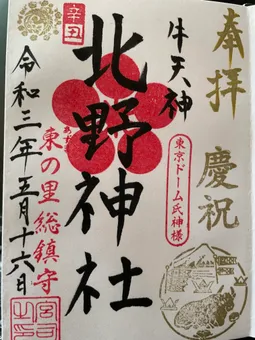 奉拝
慶祝
牛天神
東京ドーム氏神様
辛丑
北野神社
あづま
東の里総鎮守
令和三年五月十六日